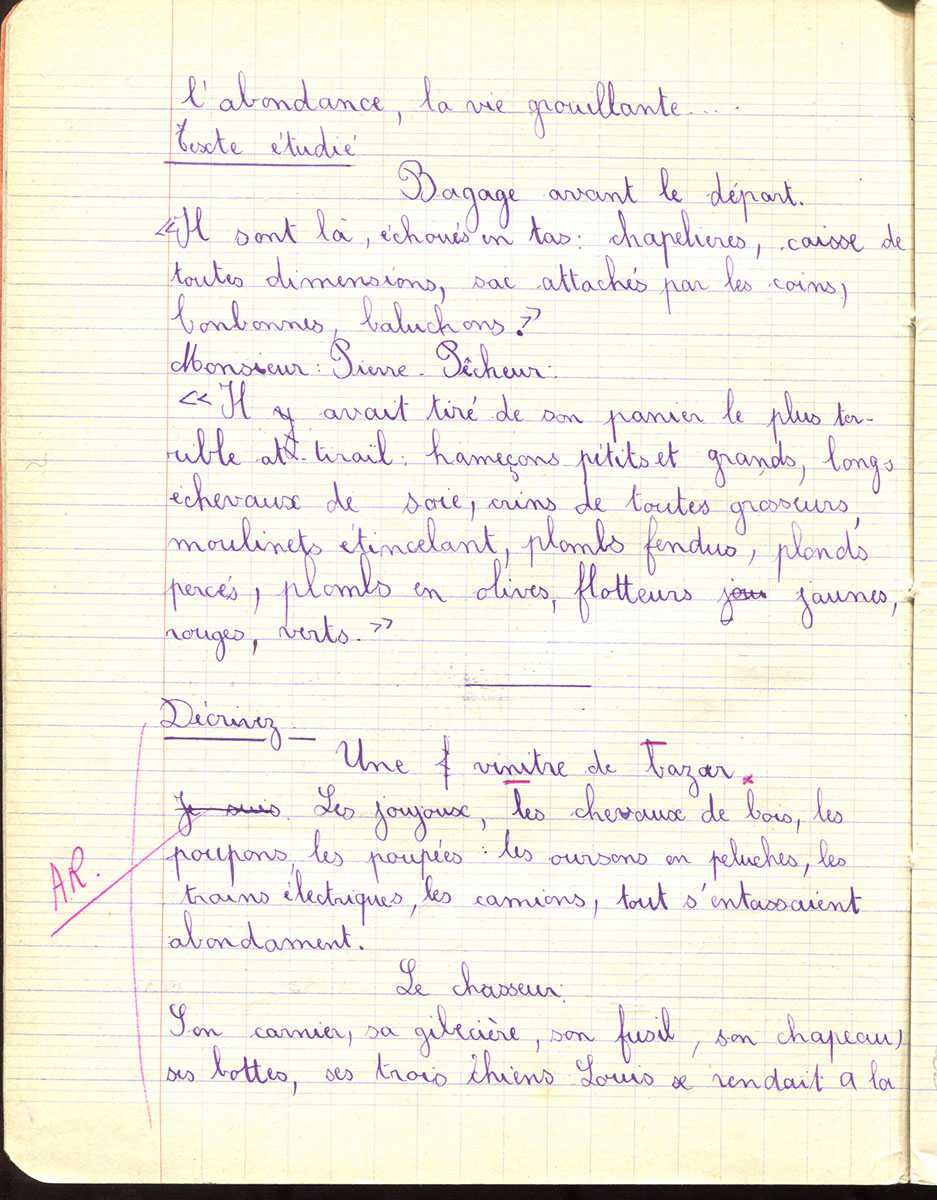 l'abondance, la vie grouillante....
Texte étudié
Bagage avant le départ.
«Il sont là, échoués en tas: chapelières, caisse de
toutes dimensions, sac attachés par les coins,
bonbonnes, baluchons.»
Monsieur: Pierre-Pêcheur:
«Il y avait tiré de son panier le plus ter-
rible att-tirail: hameçons pétits et grands, longs
échevaux de soie, crins de toutes grosseurs,
moulinets étincelant, plombs fendus, plonds
percés, plombs en olives, flotteurs jou jaunes,
rouges, verts.»
Décrivez-
Une f vinitre de bazar.
Je suis. Les joujoux, les chevaux de bois, les
poupons, les poupées: les oursons en peluches, les
A.R.
trains électriques, les camions, tout s'entassaient
abondament.
Le chasseur:
Son carnier, sa gibecière, son fusil, son chapeau,
ses bottes, ses trois chiens Louis se rendait a la